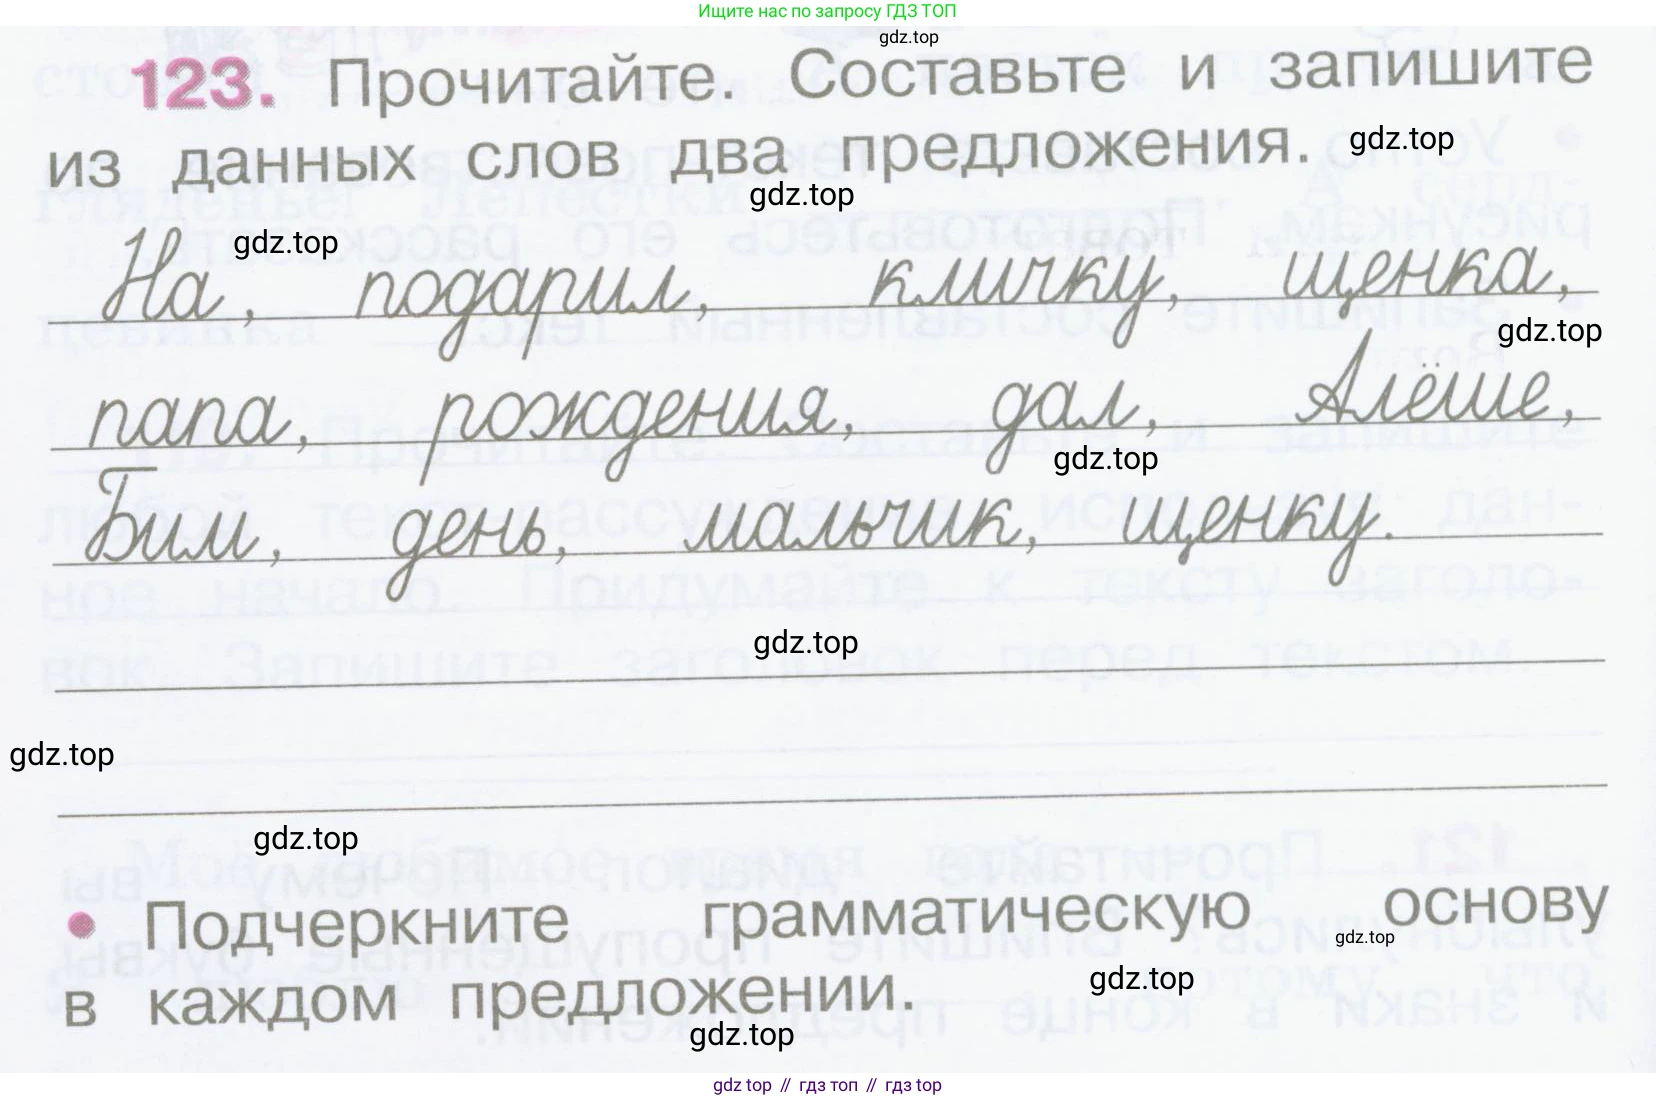 Ищите нас по запросу ГДЗ ТОП
gdz.top
123. Прочитайте. Составьте и запишите
из данных слов два предложения.
gdz.top
gdz.top
gdz.top
На, подарил, кличку, щенка,
gdz.top
папа, рождения, дал, Алёше,
gdz.top
Бим, день, мальчик, щенку.
gdz.top
gdz.top
gdz.top
• Подчеркните грамматическую основу
gdz.top
в каждом предложении.
gdz.top
gdz.top
gdz top // гдз топ // gdz top